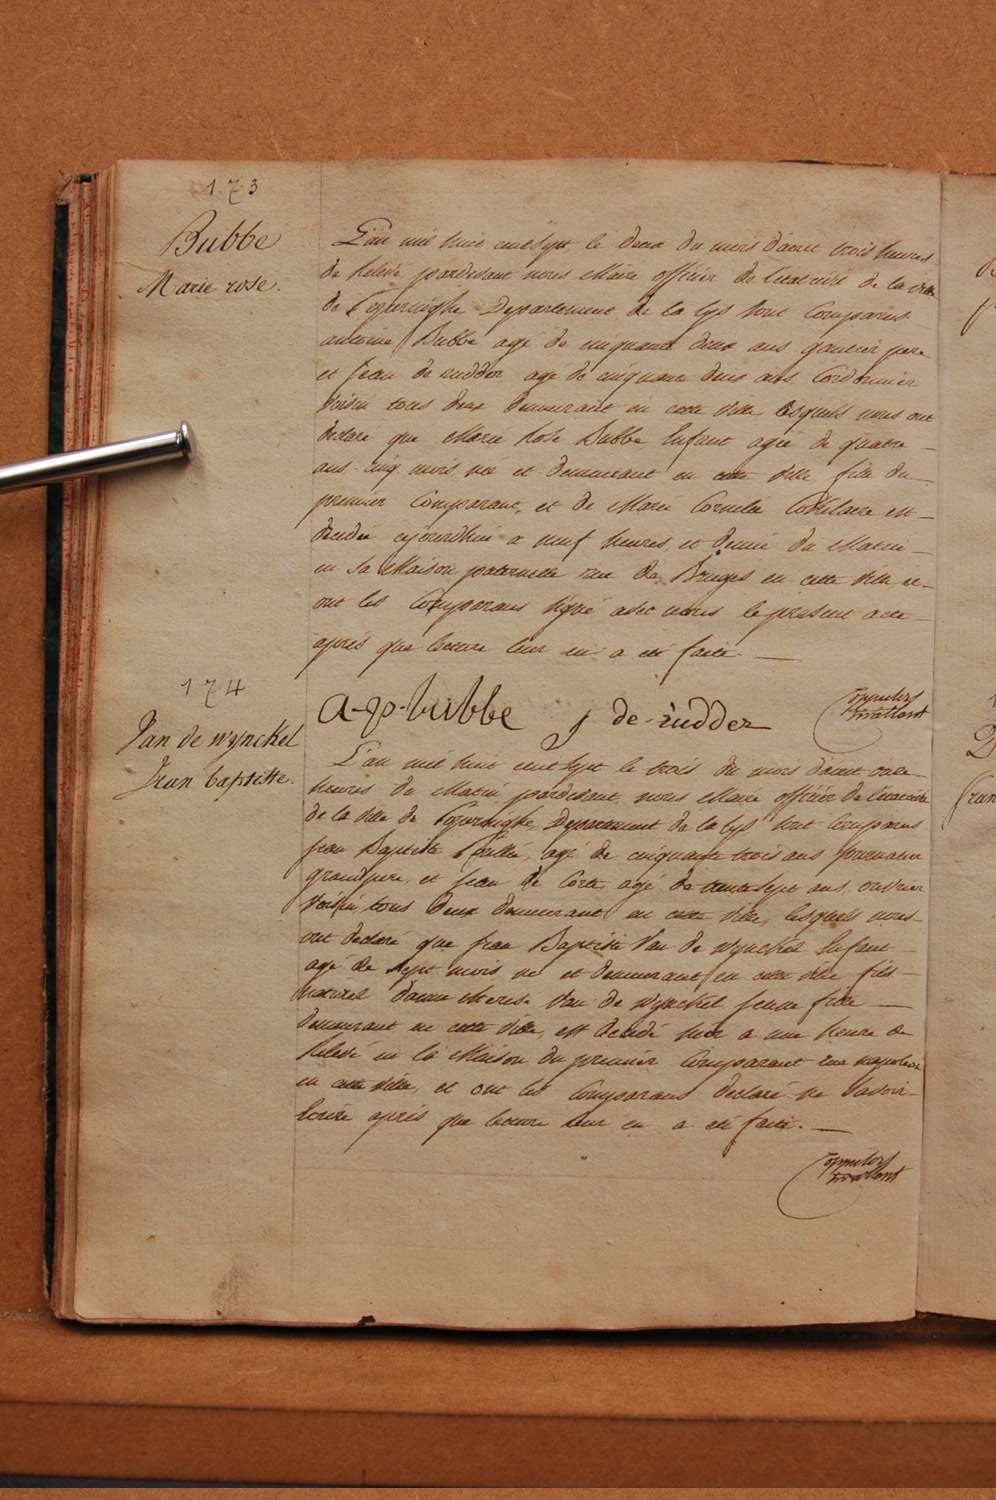 173
Bubbe
Marie rose.
L'an mil huit cent sept le deux du mois d'aout trois heures
de Relevé pardevant nous Maire officier de l'etat civil de la ville
de Poperinghe Departement de la Lys sont Comparus
antoine Bubbe agé de cinquante deux ans pere
et Jean de rudder agé de cinquante deux ans Cordonnier
voisin tous deux demeurant en cette ville lesquels nous ont
declaré que Marie Rose Bubbe Enfant agée de quatre
ans cinq mois née et demeurant en cette ville fille du
premier Comparant, et de Marie Cornelie est
decedée cejourd'hui a neuf heures et demie du Matin
en sa Maison paternelle rue de Bruges en cette ville, et
ont les Comparans signé avec nous le present acte
après que lecture leur en a eté faite.
a-p-bubbe j de-rudder
174
Van de wynckel
Jean baptiste.
L'an mil huit cent sept le trois du mois d'aout onze
heures du Matin pardevant nous Maire officier de l'etat civil
de la ville de Poperinghe Departement de la Lys sont Comparus
Jean Baptiste agé de cinquante trois ans
grandpere, et Jean de Corte agé de trente sept ans, ouvrier
Voisin, tous deux demeurant en cette ville, lesquels nous
ont declaré que Jean Baptiste Van de wynckel Enfant
agé de Sept mois né et demeurant en cette ville fils
naturel d'anne therese Van de Wynckel jeune fille
demeurant en cette ville, est decedé hier a une heure de
Relevé en la Maison du premier Comparant rue napoleon
en cette ville, et ont les Comparans declaré ne savoir
Ecrire après que lecture leur en a eté faite.